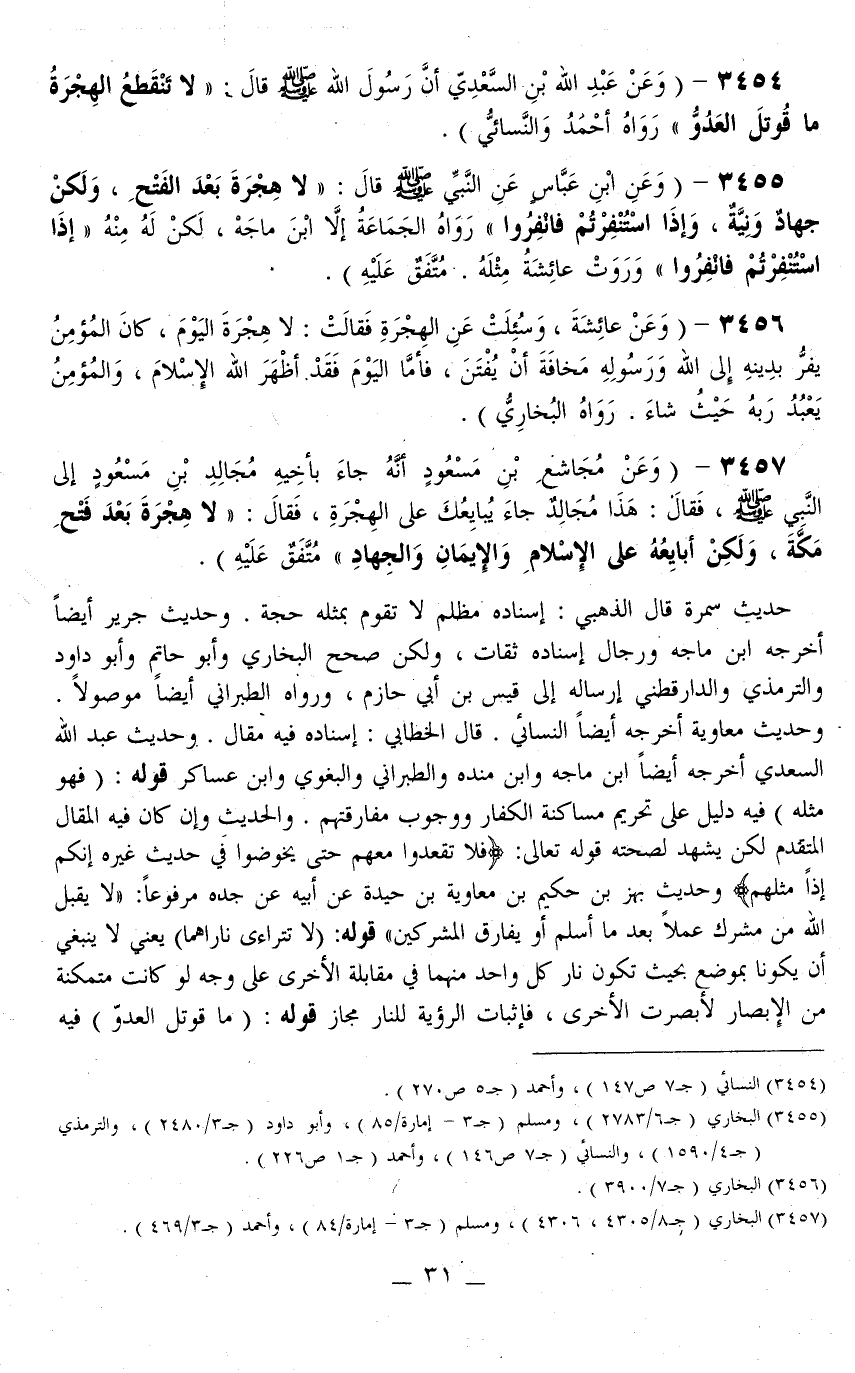 ٣٤٥٤ – ( وَعَنْ عَبْدِ الله بْنِ السَّعْدِيّ أنَّ رَسُولَ الله ﷺ قالَ : « لا تَنْقَطعُ الهِجْرَةُ
ما قُوتلَ العَدُوُّ » رَوَاهُ أحْمَدُ وَالنَّسائيُّ ) .
٣٤٥٥ – ( وَعَنِ ابْنِ عَبَّاسٍ عَنِ النَّبيِّ ﷺ قالَ : « لا هِجْرَةَ بَعْدَ الفَتْحِ ، وَلَكنْ
جهادٌ وَنِيَّةٌ ، وَإذَا اسْتُنْفِرْتُمْ فانْفِرُوا » رَوَاهُ الجَماعَةُ إلَّا ابْنَ ماجَهْ ، لَكنْ لَهُ مِنْهُ « إذَا
اسْتُنْفِرْتُمْ فانْفِرُوا » وَرَوَتْ عائِشَةُ مِثْلَهُ . مُتَّفَقٌ عَلَيْهِ ) .
٣٤٥٦ – ( وَعَنْ عائِشَةَ ، وَسُئِلَتْ عَنِ الهِجْرَةِ فَقالَتْ : لا هِجْرَةَ اليَوْمَ ، كانَ المُؤمِنُ
يفرُّ بدِينهِ إِلى الله وَرَسُولِهِ مَخافَةَ أنْ يُفْتَنَ ، فأمَّا اليَوْمَ فَقَدْ أظْهَرَ الله الإِسْلامَ ، وَالمُؤمِنُ
يَعْبُدُ رَبهُ حَيْثُ شاءَ . رَوَاهُ البُخاريُّ ) .
٣٤٥٧ – ( وَعَنْ مُجَاشعِ بْنِ مَسْعُودٍ أنَّهُ جاءَ بأخيهِ مُجَالِدِ بْنِ مَسْعُودٍ إلى
النَّبي ﷺ ، فَقالَ : هَذَا مُجَالِدٌ جاءَ يُبايعُكَ على الهِجْرَةِ ، فَقالَ : « لا هِجْرَةَ بَعْدَ فَتْحِ
مَكَّةَ ، وَلَكِنْ أبايِعُهُ على الإِسْلامِ وَالإِيمَانِ وَالجِهادِ » مُتَّفَقٌ عَلَيْهِ ) .
حديث سمرة قال الذهبي : إسناده مظلم لا تقوم بمثله حجة . وحديث جرير أيضاً
أخرجه ابن ماجه ورجال إسناده ثقات ، ولكن صحح البخاري وأبو حاتم وأبو داود
والترمذي والدارقطني إرساله إلى قيس بن أبي حازم ، ورواه الطبراني أيضاً موصولاً .
وحديث معاوية أخرجه أيضاً النسائي . قال الخطابي : إسناده فيه مقال . وحديث عبد الله
السعدي أخرجه أيضاً ابن ماجه وابن منده والطبراني والبغوي وابن عساكر قوله : ( فهو
مثله ) فيه دليل على تحريم مساكنة الكفار ووجوب مفارقتهم . والحديث وإن كان فيه المقال
المتقدم لكن يشهد لصحته قوله تعالى: ﴿فلا تقعدوا معهم حتى يخوضوا في حديث غيره إنكم
إذاً مثلهم﴾ وحديث بهز بن حكيم بن معاوية بن حيدة عن أبيه عن جده مرفوعاً: «لا يقبل
الله من مشرك عملاً بعد ما أسلم أو يفارق المشركين» قوله: (لا تتراءى ناراهما) يعني لا ينبغي
أن يكونا بموضع بحيث تكون نار كل واحد منهما في مقابلة الأخرى على وجه لو كانت متمكنة
من الإبصار لأبصرت الأخرى ، فإثبات الرؤية للنار مجاز قوله : ( ما قوتل العدوّ ) فيه
(٣٤٥٤) النسائي ( جـ٧ ص١٤٧ ) ، وأحمد ( جـ٥ ص٢٧٠ ) .
(٣٤٥٥) البخاري ( جـ٢٧٨٣/٦ ) ، ومسلم ( جـ٣ – إمارة/٨٥ ) ، وأبو داود ( جـ٢٤٨٠/٣ ) ، والترمذي
( جـ١٥٩٠/٤ ) ، والنسائي ( جـ٧ ص١٤٦ ) ، وأحمد ( جـ١ ص٢٢٦ ) .
(٣٤٥٦) البخاري ( جـ٣٩٠٠/٧ ) .
(٣٤٥٧) البخاري ( جـ٤٣٠٥/٨ ، ٤٣٠٦ ) ، ومسلم ( جـ٣ – إمارة/٨٤ ) ، وأحمد ( جـ٤٦٩/٣ ) .
– ٣١ –